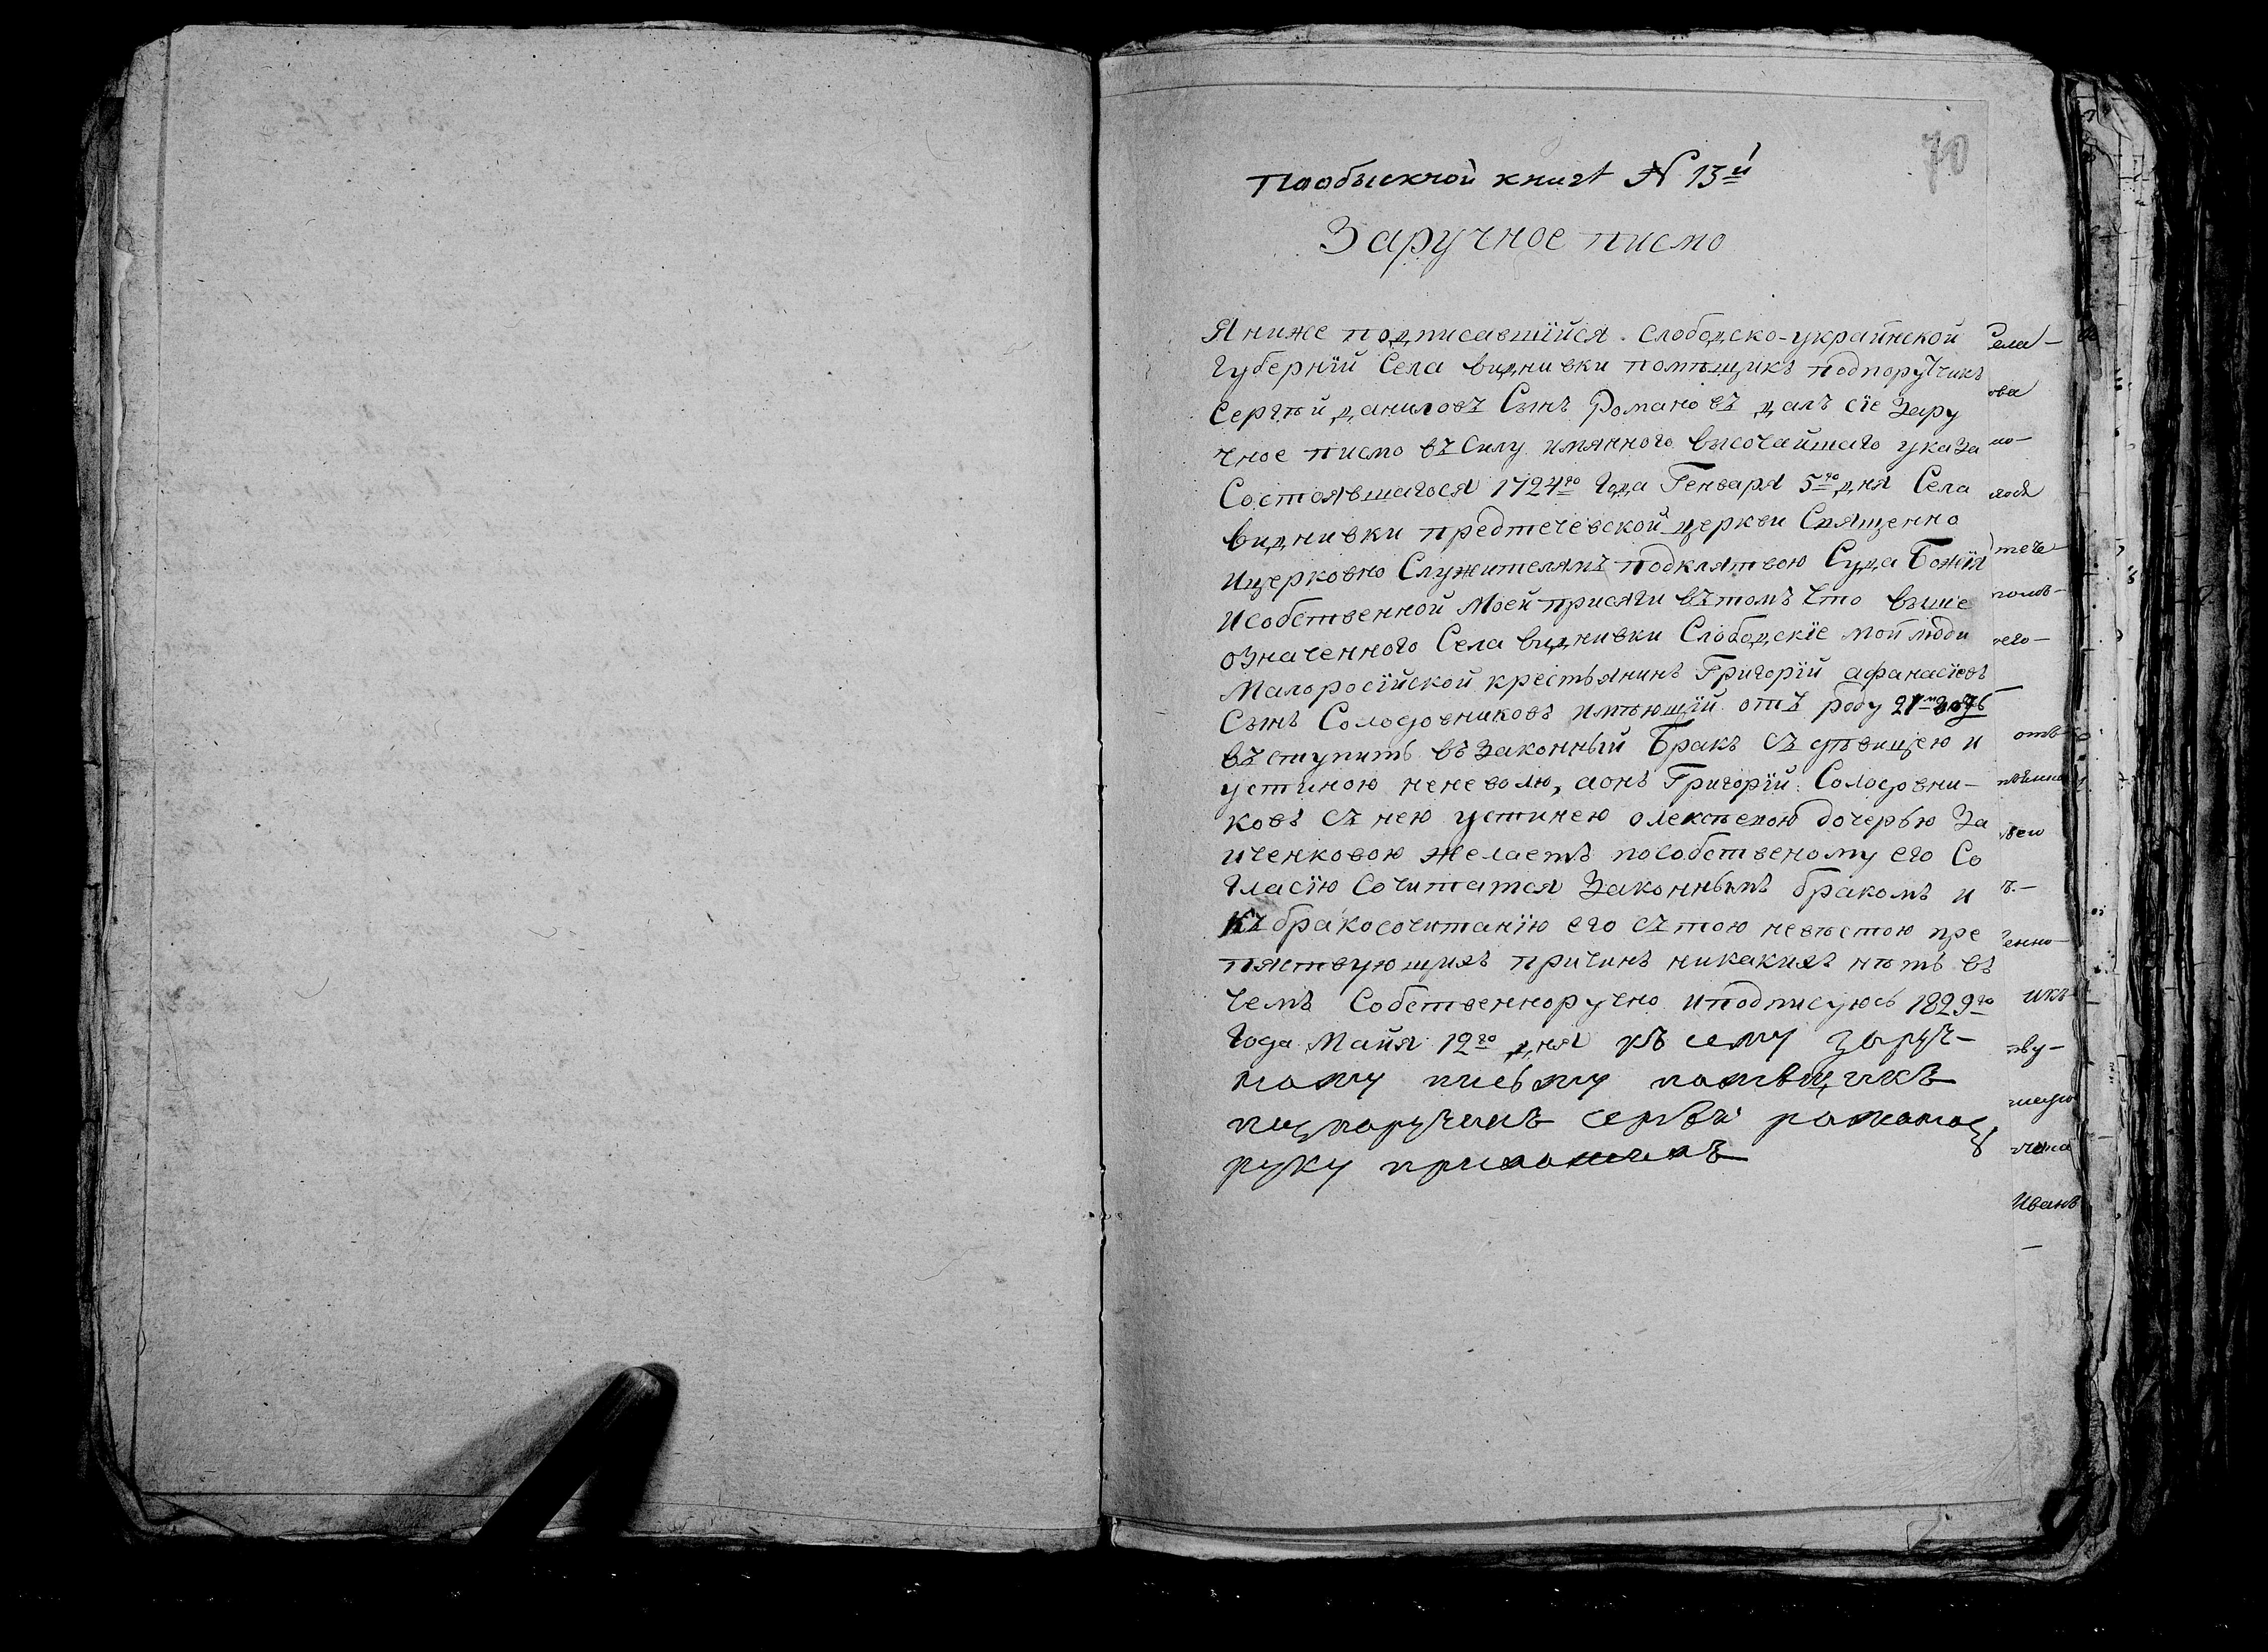 70
Пообыскной книгѣ № 13й
Заручное писмо
Я ниже подписавшїйся Слободско-украинской
Губернїй Села виднивки помѣщикъ подпорутчикъ
Сергѣй даниловъ Сынъ Романовъ далъ сїе Зару
чное писмо въ Силу имянного высочайшаго указа
Состоявшагося 1724го года Генваря 5го дня Села
виднивки предтечевской церкви Священно
ицерковно Служителямъ подклятвою Суда Божїя
Исобственной Моей присяги въ томъ что выше
означенного Села виднивки Слободскїе мои люди
Малоросїйской крестьянинъ Григорїй афанасїевъ
Сынъ Солодовниковъ имѣющїй отъ роду 21
въступить въ законный Бракъ съ дѣвицею и
устиною неневолю, аонъ Григорїй Солодовни-
ковъ съ нею устинею олексѣевою дочерью За
иченковою желаетъ пособственому его Со
гласїю Сочитатся Законнымъ бракомъ и
къ бракосочитанїю его съ тою невѣстою пре
пятствующихъ причинъ никакихъ нѣтъ въ
чемъ Собственноручно иподписуюсь 1829го
года Майя 12го дня къ сему заруч-
ному письму помѣщикъ
подпоручикъ сергѣй романов
руку приложилъ
Села-
ова
но-
тече-
него-
отъ
ъ.-
енно-
икъ
тву-
Иванъ